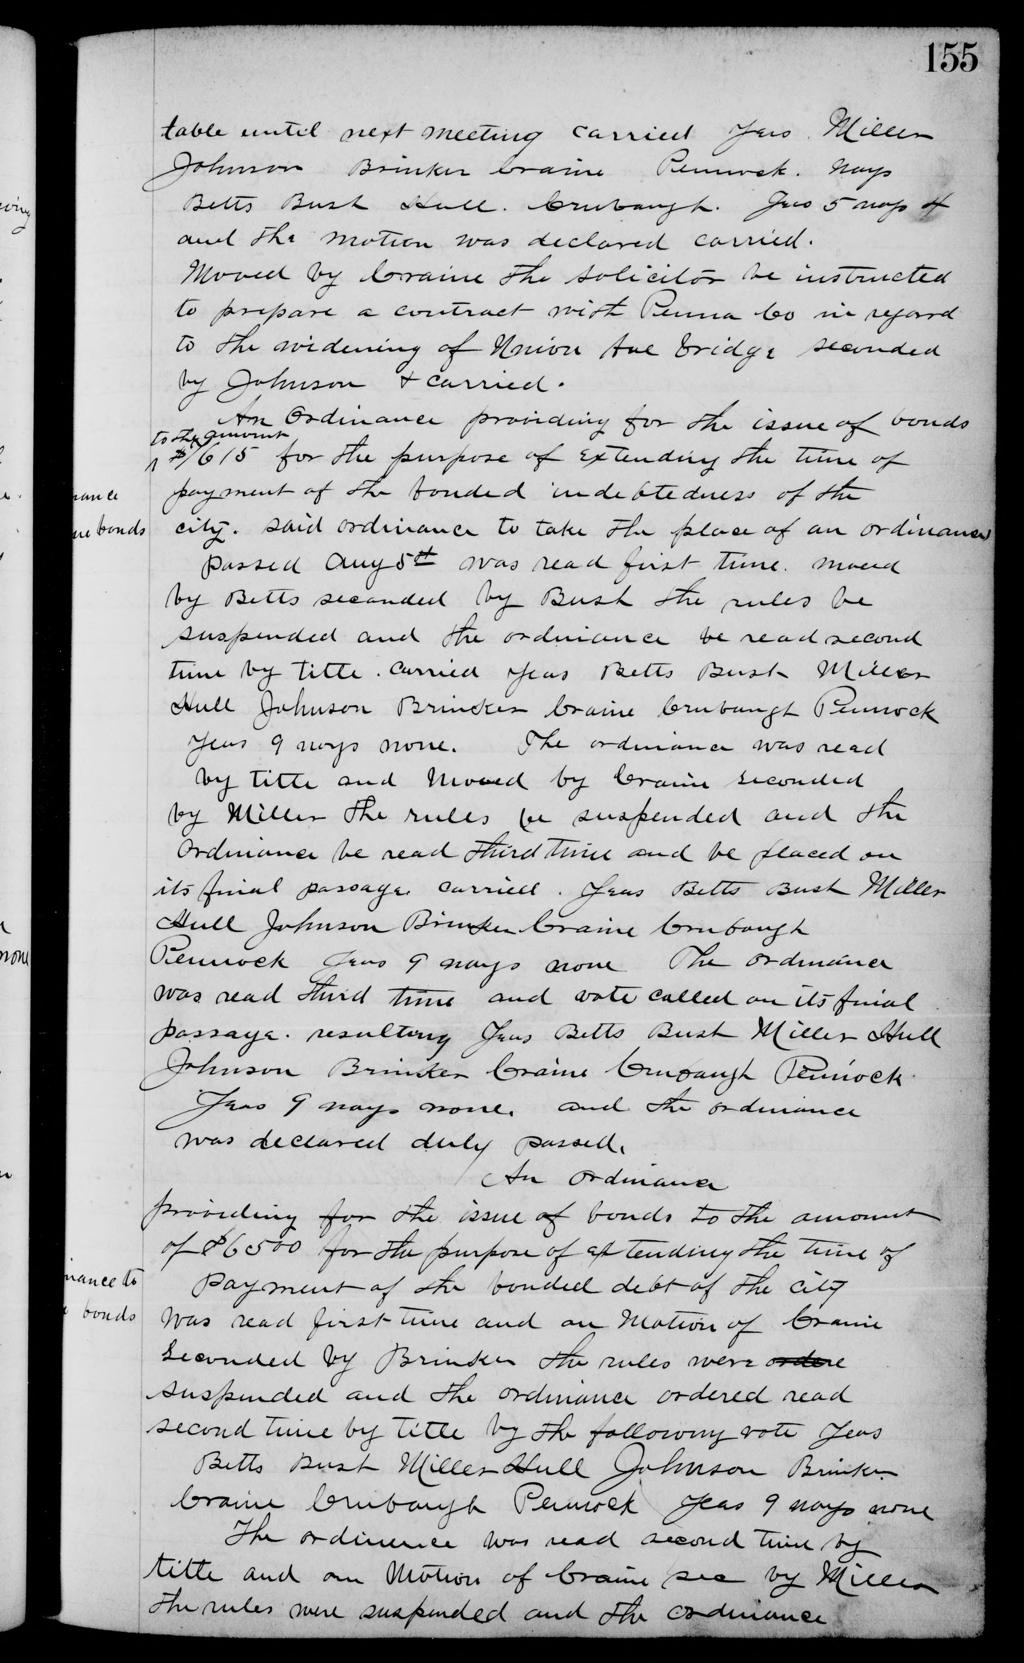 155
table until next meeting carried Yeas Miller
Johnson Brinker Craine Pennock. nays
Betts Bush Hull. Crubaugh. Yeas 5 nays 4
and the motion was declared carried.
Moved by Craine the solicitor be instructed
to prepare a contract with Penna Co in regard
to the widening of Union Ave bridge seconded
by Johnson & carried.
An Ordinance providing for the issue of bonds
to the amount
$1615 for the purpose of Extending the time of
payment of the bonded indebtedness of the
nance
city. said ordinance to take the place of an ordinance
bonds
passed Aug 5th was read first time. moved
by Betts seconded by Bush the rules be
suspended and the ordinance be read second
time by title. carried yeas Betts Bush Miller
Hull Johnson Brinker Craine Crubaugh Pennock
Yeas 9 nays none. The ordinance was read
by title and Moved by Craine seconded
by Miller the rules be suspended and the
Ordinance be read third time and be placed on
its final passage. carried. Yeas Betts Bush Miller
Hull Johnson Brinker Craine Crubaugh
Pennock Yeas 9 nays none The ordinance
none
was read third time and vote called on its final
passage. resulting Yeas Betts Bush Miller Hull
Johnson Brinker Craine Crubaugh Pennock
Yeas 9 nays none. and the ordinance
was declared duly passed.
An ordinance
providing for the issue of bonds to the amount
of $6500 for the purpose of extending the time of
nance to
payment of the bonded debt of the city
bonds
was read first time and on Motion of Craine
Seconded by Brinker the rules were ordere
suspended and the ordinance ordered read
second time by title by the following vote Yeas
Betts Bush Miller Hull Johnson Brinker
Craine Crubaugh Pennock Yeas 9 nays none
The ordinence was read second time by
title and on Motion of Craine sec by Miller
the rules were suspended and the ordinance